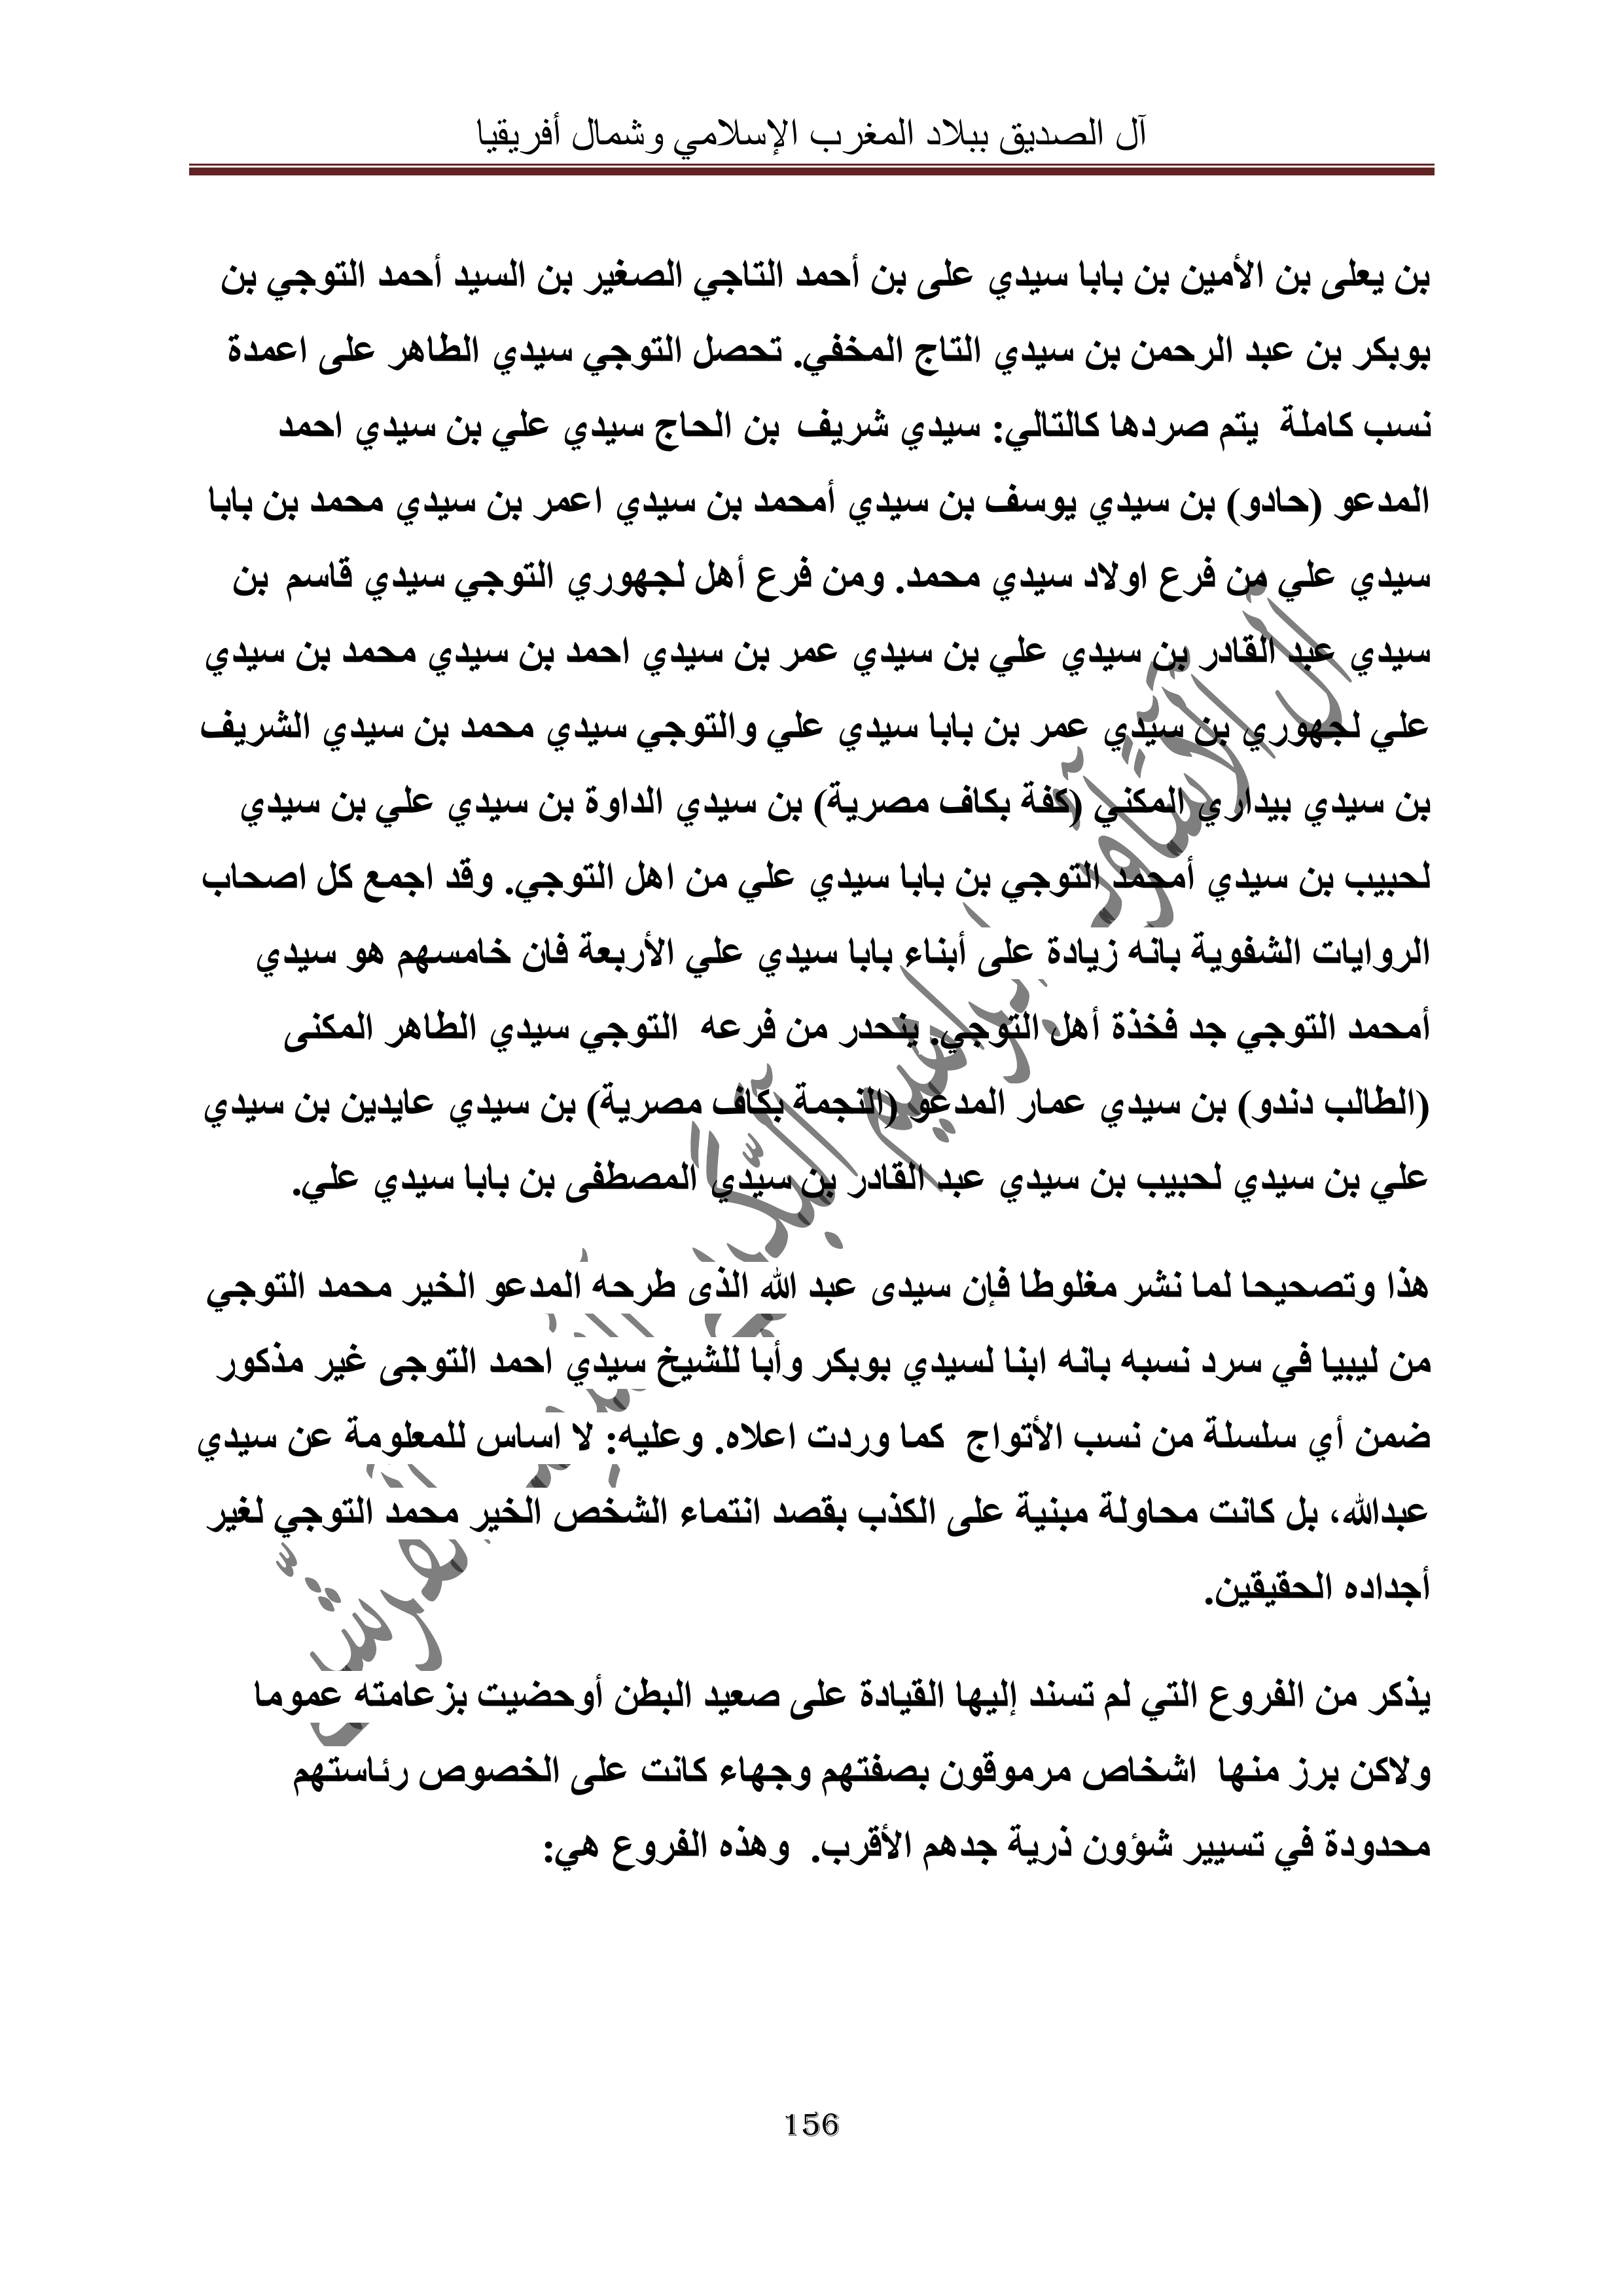 آل الصديق ببلاد المغرب الإسلامي وشمال أفريقيا
بن يعلى بن الأمين بن بابا سيدي على بن أحمد التاجي الصغير بن السيد أحمد التوجي بن
بوبكر بن عبد الرحمن بن سيدي التاج المخفي. تحصل التوجي سيدي الطاهر على اعمدة
نسب كاملة يتم صردها كالتالي: سيدي شريف بن الحاج سيدي علي بن سيدي احمد
المدعو (حادو) بن سيدي يوسف بن سيدي أمحمد بن سيدي اعمر بن سيدي محمد بن بابا
سيدي علي من فرع اولاد سيدي محمد. ومن فرع أهل لجهوري التوجي سيدي قاسم بن
سيدي عبد القادر بن سيدي علي بن سيدي عمر بن سيدي احمد بن سيدي محمد بن سيدي
علي لجهوري بن سيدي عمر بن بابا سيدي علي والتوجي سيدي محمد بن سيدي الشريف
بن سيدي بيداري المكني (كفة بكاف مصرية) بن سيدي الداوة بن سيدي علي بن سيدي
لحبيب بن سيدي أمحمد التوجي بن بابا سيدي علي من اهل التوجي. وقد اجمع كل اصحاب
الروايات الشفوية بانه زيادة على أبناء بابا سيدي علي الأربعة فان خامسهم هو سيدي
أمحمد التوجي جد فخذة أهل التوجي. ينحدر من فرعه التوجي سيدي الطاهر المكنى
(الطالب دندو) بن سيدي عمار المدعو (النجمة بكاف مصرية) بن سيدي عايدين بن سيدي
علي بن سيدي لحبيب بن سيدي عبد القادر بن سيدي المصطفى بن بابا سيدي علي.
هذا وتصحيحا لما نشر مغلوطا فإن سيدى عبد الله الذى طرحه المدعو الخير محمد التوجي
من ليبيا في سرد نسبه بانه ابنا لسيدي بوبكر وأبا للشيخ سيدي احمد التوجى غير مذكور
ضمن أي سلسلة من نسب الأتواج كما وردت اعلاه. وعليه: لا اساس للمعلومة عن سيدي
عبدالله، بل كانت محاولة مبنية على الكذب بقصد انتماء الشخص الخير محمد التوجي لغير
أجداده الحقيقين.
يذكر من الفروع التي لم تسند إليها القيادة على صعيد البطن أوحضيت بزعامته عموما
ولاكن برز منها اشخاص مرموقون بصفتهم وجهاء كانت على الخصوص رئاستهم
محدودة في تسيير شؤون ذرية جدهم الأقرب. وهذه الفروع هي:
156